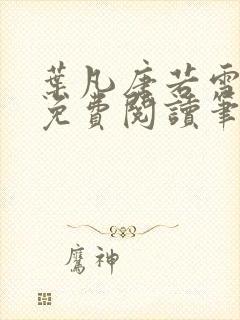 葉凡唐若雪
免費閱讀筆
鷹神